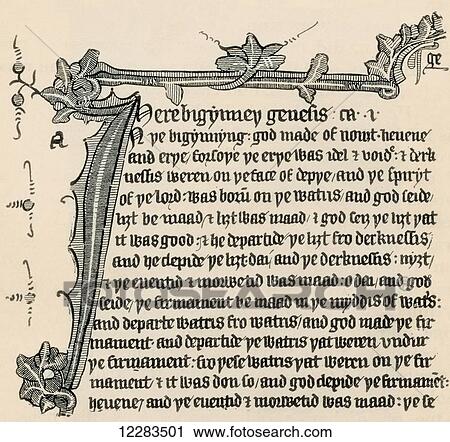 ge
Here bigynney genesis : ca · i ·
a
N ye bigynnyng : god made of nowt heuene
and erye / forsoye ye erye was idel & void' : & derk
nessis weren on ye face of depye / and ye spiryt
of ye lord : was born̄ on ye watris / and god seide /
liȝt be maad / & liȝt was maad / & god seiȝ ye liȝt yat
it was good : & he departide ye liȝt fro derknessis /
and he clepide ye liȝt dai / and ye derknessis : nyȝt /
& ye euentid & morwetid was maad : o dai / and god
seide / ye firmament be maad in ye myddis of wat's :
and departe watris fro watris / and god made ye fir
mament · and departide ye watris yat weren vndur
ye firmament : fro yese watris yat weren on ye fir
mament / & it was don so / and god clepide ye firmamēt :
heuene / and ye euentid & morwetid was maad : ye se
FOTOSEARCH
12283501 www.fotosearch.com